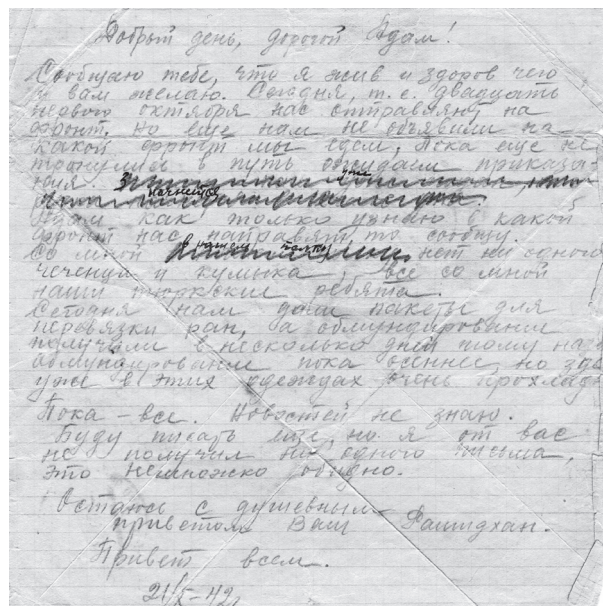 Добрый день, дорогой Адам!
Сообщаю тебе, что я жив и здоров чего
и вам желаю. Сегодня, т.е. двадцать
первого октября нас отправляют на
фронт. Но еще нам не объявили на
какой фронт мы едем, Пока еще не
тронулись в путь ожидаем приказы-
ния.
уже
начнется
Адам как только узнаю в какой
фронт нас направят то сообщу.
Со мной в нашем полку нет ни одного
чеченца и кумыка, все со мной
наши тюркские ребята.
Сегодня нам дали пакеты для
перевязки ран, а обмундирование
получили в несколько дней тому на-
обмундирование пока осеннее, но зде
уже в этих одеждах очень прохладн
Пока - все. Новостей не знаю.
Буду писать еще, но я от вас
не получил ни одного письма,
это немножко обидно.
Остаюсь с душевным
приветом Ваш Рашидхан.
Привет всем.
21/X-42г